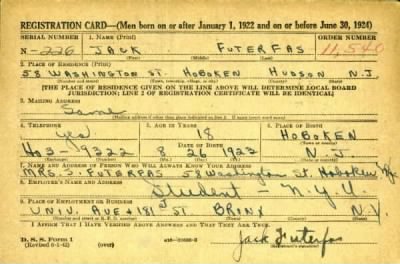 REGISTRATION CARD—(Men born on or after January 1, 1922 and on or before June 30, 1924)
SERIAL NUMBER 1. NAME (Print) ORDER NUMBER
N-226 JACK FUTERFAS 11,540
(First) (Middle) (Last)
2. PLACE OF RESIDENCE (Print)
58 WASHINGTON ST. HOBOKEN HUDSON N.J.
(Number and street) (Town, township, village, or city) (County) (State)
[THE PLACE OF RESIDENCE GIVEN ON THE LINE ABOVE WILL DETERMINE LOCAL BOARD
JURISDICTION; LINE 2 OF REGISTRATION CERTIFICATE WILL BE IDENTICAL]
3. MAILING ADDRESS
Same
[Mailing address if other than place indicated on line 2. If same insert word same]
4. TELEPHONE 5. AGE IN YEARS 6. PLACE OF BIRTH
Yes 18 HOBOKEN
DATE OF BIRTH
HO3-9322 8 26 1923 N.J.
7. NAME AND ADDRESS OF PERSON WHO WILL ALWAYS KNOW YOUR ADDRESS
MRS. S. FUTERFAS 58 Washington St. Hoboken N.J.
8. EMPLOYER'S NAME AND ADDRESS
Student N.Y.U
9. PLACE OF EMPLOYMENT OR BUSINESS
UNIV. AVE & 181 ST. BRONX N.Y.
I AFFIRM THAT I HAVE VERIFIED ABOVE ANSWERS AND THAT THEY ARE TRUE.
D. S. S. Form 1
(Revised 6-9-42) (over)
Jack Futerfas